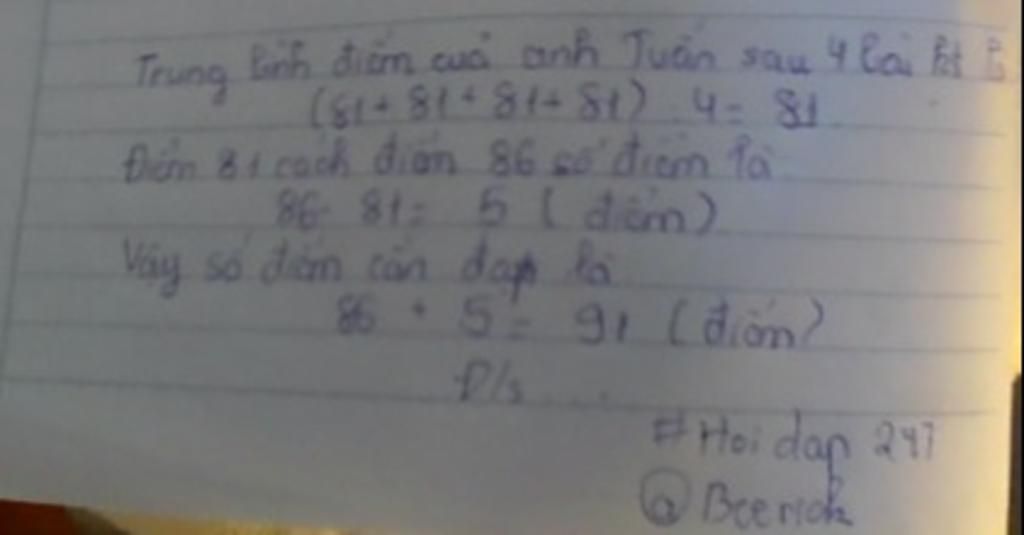 Trung bình điểm cuả anh Tuấn sau 4 bài
(81+ 81+ 81+ 81) : 4= 81
Điểm 81 cách điểm 86 số điểm là
86- 81= 5 ( điểm)
Vậy số điểm cần đạt là
86 + 5 = 91 (điểm)
Đ/s ....
#Hoi dap 247
@Beerick